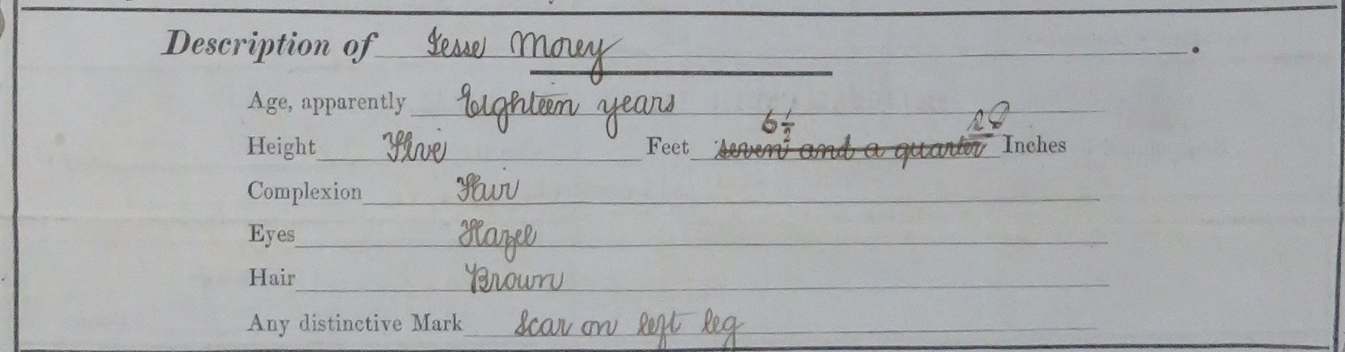 Description of Jesse Morey.
Age, apparently Eighteen years
Height Five Feet 6½ seven and a quarter Inches
Complexion Fair
Eyes Hazel
Hair Brown
Any distinctive Mark Scar on left leg